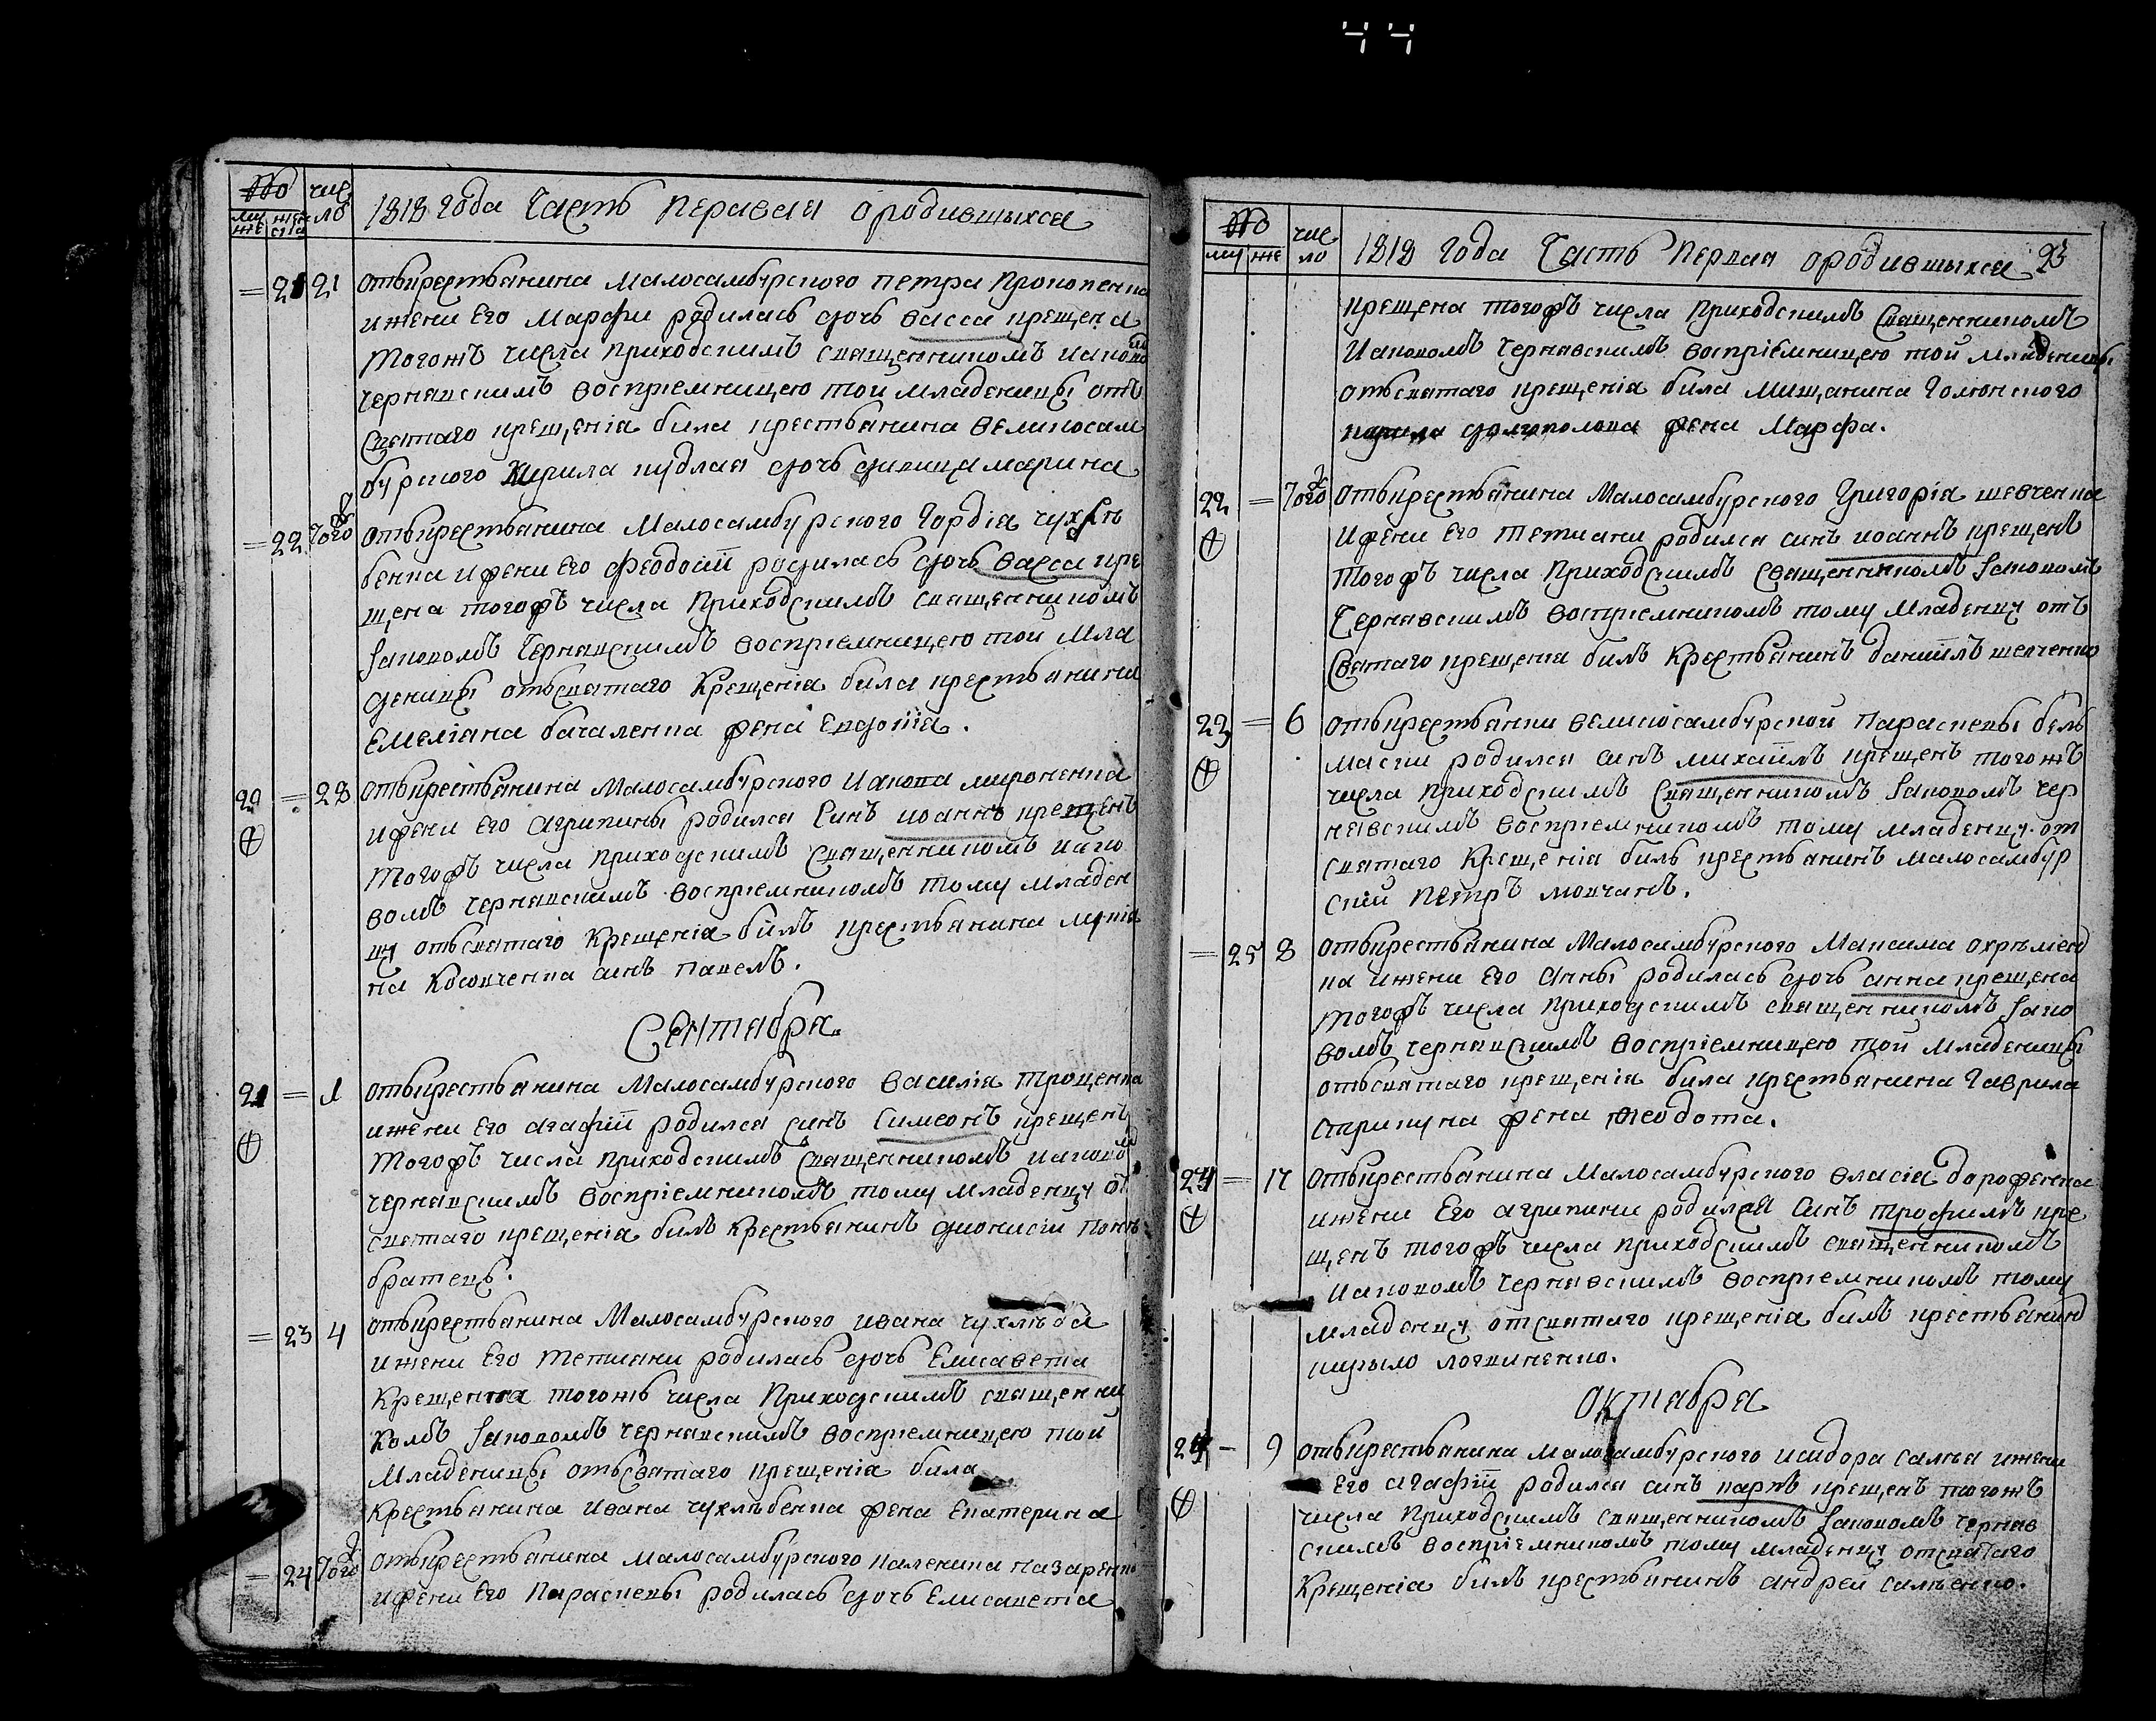 44
№ чис
му жен ло
же ска
1818 года Часть Перавая ородившыхся
= 21 21 отъкрестьянина Малосамбурского петра Прокопенка
ижени Его Марфи родилась дочь васса крещена
тогожъ числа приходскимъ священникомъ иаково
чернявскимъ восприемницею той младеницы отъ
святаго крещенія била крестьянина великосам
бурского Кирила кудлая дочь дивица марина
= 22 Тогож отъкрестьянина Малосамбурского Гордія чухлѣ
бенка ижени Его Феодосіи родилась дочь васса кре
щена тогожъ числа Приходскимъ священникомъ
Іаковомъ Чернявскимъ восприемницею той Мла
деницы отьсвятаго Крещенія била крестьянина
Емеліана бакаленка жена Евдокія.
20 = 28 отъкрестьянина Малосамбурского Иакова мироненка
ижени Его агрипины родился Синъ иоаннъ крещенъ
тогожъ числа приходскимъ священникомъ иако
вомъ чернявскимъ восприемникомъ тому младен
цу отьсвятаго Крещенія билъ крестьянина лукіа
на Косовченка синъ павелъ.
Сентабра.
21 = 1 отъкрестьянина Малосамбурского василіа троценка
ижени Его агафіи родился синъ Симеонъ крещенъ
тогожъ числа приходскимъ священникомъ иаково
чернявскимъ восприемникомъ тому младенцу от
святаго крещенія билъ крестьянинъ дионисій панѣ
братецъ.
= 23 4 отъкрестьянина Малосамбурского ивана чухлѣба
ижени Его тетиани родилась дочь Елисавета
Крещенна тогожъ числа Приходскимъ священни
комъ Іаковомъ чернявскимъ восприемницею той
младеницы отъсвятаго крещенія била
крестьянина ивана чухлѣбенка жена Екатерина
= 24 Тогож отъкрестьянина малосамбурского каленика назаренко
ижени Его Параскевы родилась дочь Елисавета
№ чис
му же ло
1818 Года Часть Первая ородившыхся 23
крещена тогожъ числа Приходскимъ Священникомъ
Иаковомъ чернявскимъ восприемницею той младеницы
отьсвятаго крещенія била мищанина Голюнского
жена Марфа.
22 = Тогож отъкрестьянина Малосамбурского Григоріа шевченка
ижени Его тетиани родился синъ иоаннъ крещенъ
тогожъ числа Приходскимъ Священникомъ Іаковомъ
Чернявскимъ восприемникомъ тому младенцу отъ
Святаго крещенія билъ Крестьянинъ даніилъ шевченко
23 = 6 отъкрестьянки великосамбурской Параскевы бель
маски родился синъ михаилъ крещенъ тогожъ
числа приходскимъ Священникомъ Іаковомъ чер
нявскимъ восприемникомъ тому младенцу от
святаго Крещенія билъ крестьянинъ малосамбур
скій Петръ мовчанъ.
= 25 8 отъкрестьянина Малосамбурского Максима охрѣмен
ка ижени Его Анны родилась дочь анна крещена
тогожъ числа приходскимъ священникомъ Іако
вомъ чернявскимъ восприемницею той младеницы
отьсвятаго крещенія била крестьянина Гаврила
старикука жена Феодота.
24 = 17 отъкрестьянина Малосамбурского власіа дорофенка
ижени Его агрипини родился Синъ трофимъ кре
щенъ тогожъ числа приходскимъ священникомъ
Иаковомъ чернявскимъ восприемникомъ тому
младенцу отсвятаго крещенія билъ крестьянин
кирыло логвиненко.
октабра
24 – 9 отъкрестьянина малосамбурского исидора салѣя ижени
его агафіи родился синъ карпъ крещенъ тогожъ
числа Приходскимъ священникомъ Іаковомъ черняв
скимъ восприемникомъ тому младенцу отсвятаго
Крещенія билъ крестьянинъ андрей салѣенко.